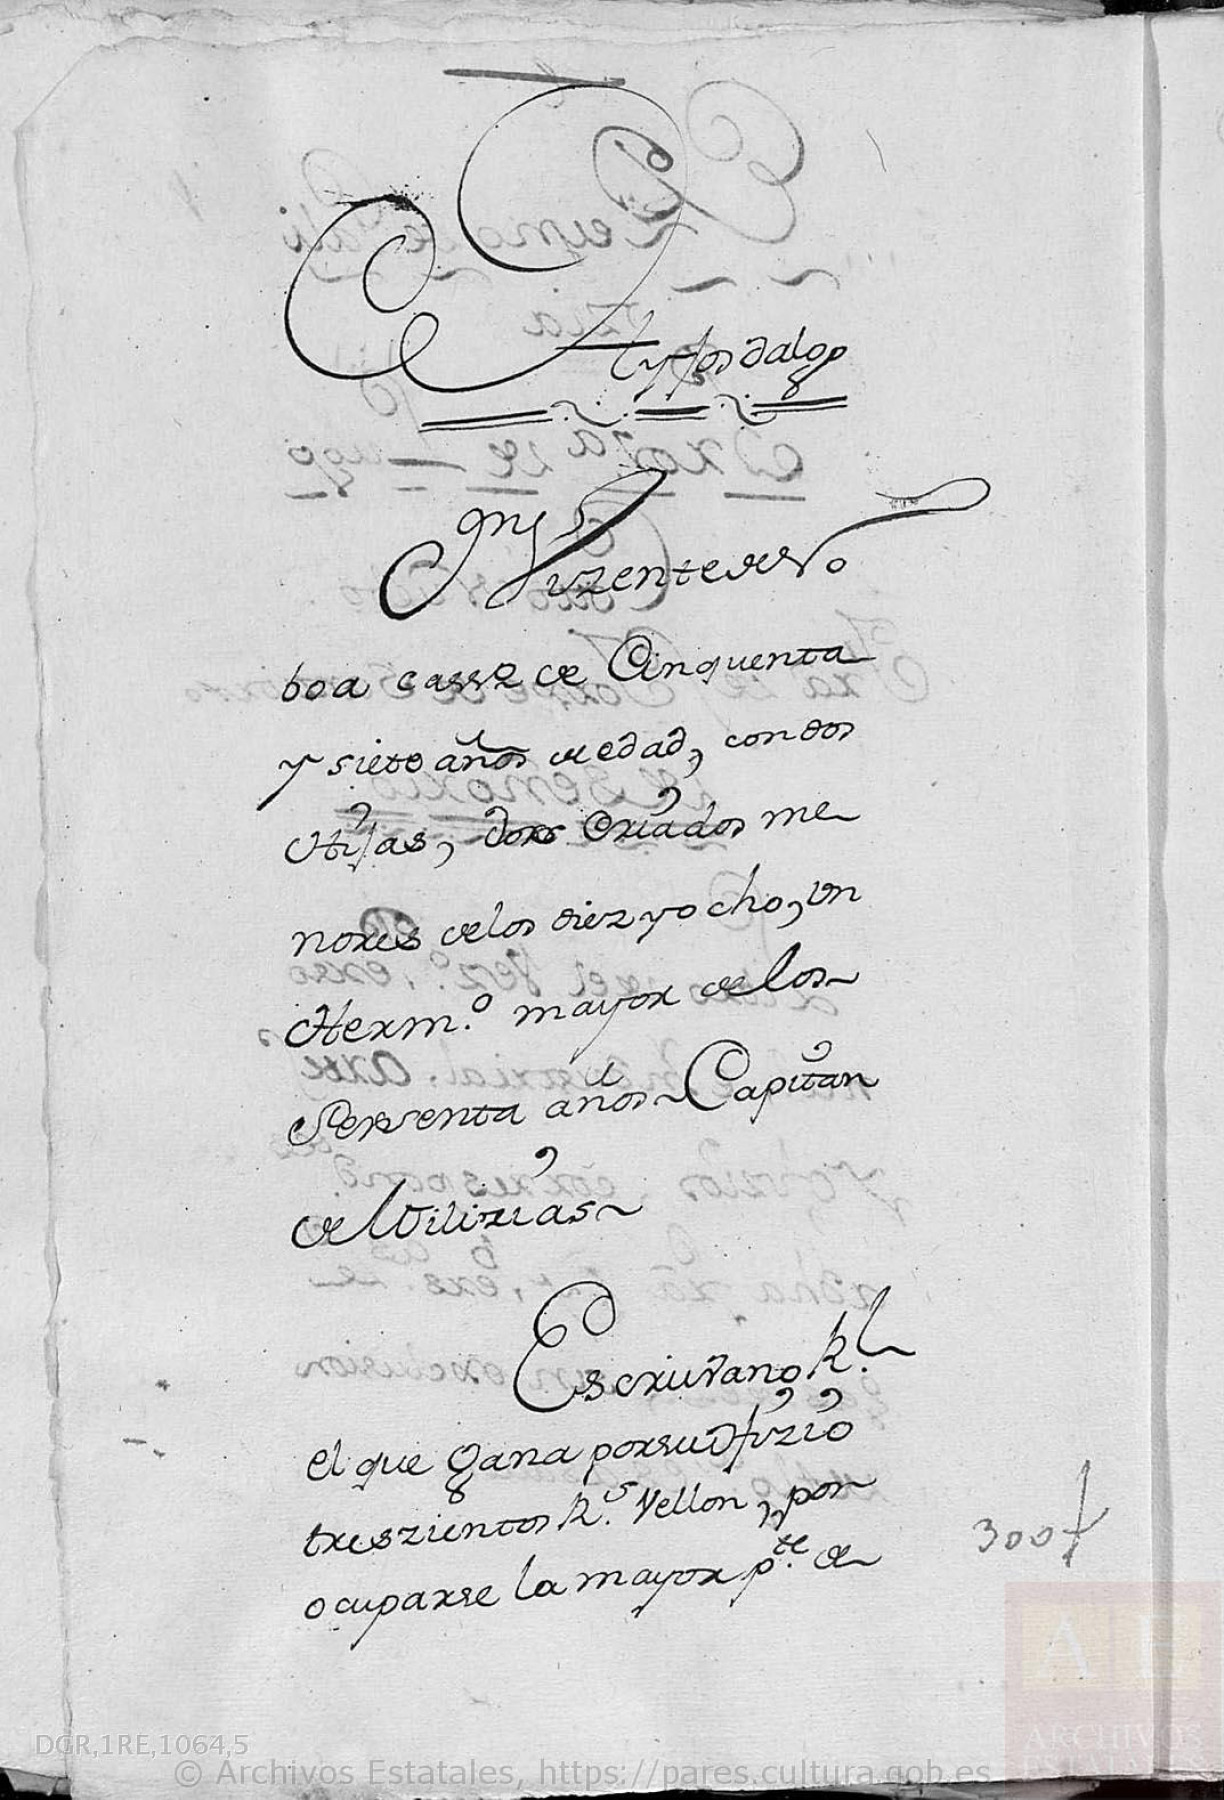 Hyjosdalgo
Dn Vizente de No
boa casso de Cinquenta
y siete años de edad, con dos
Hijas, dos Criados me
nores de los diez y ocho, Un
Herm.º mayor de los
Sesenta años Capitan
de Milizias
Escrivano R.l
el que gana por su ofizio
treszientos R.s Vellon, por
ocuparse la mayor p.te de
300
DGR,1RE,1064,5
© Archivos Estatales, https://pares.cultura.gob.es
A E
ARCHIVOS
ESTATALES